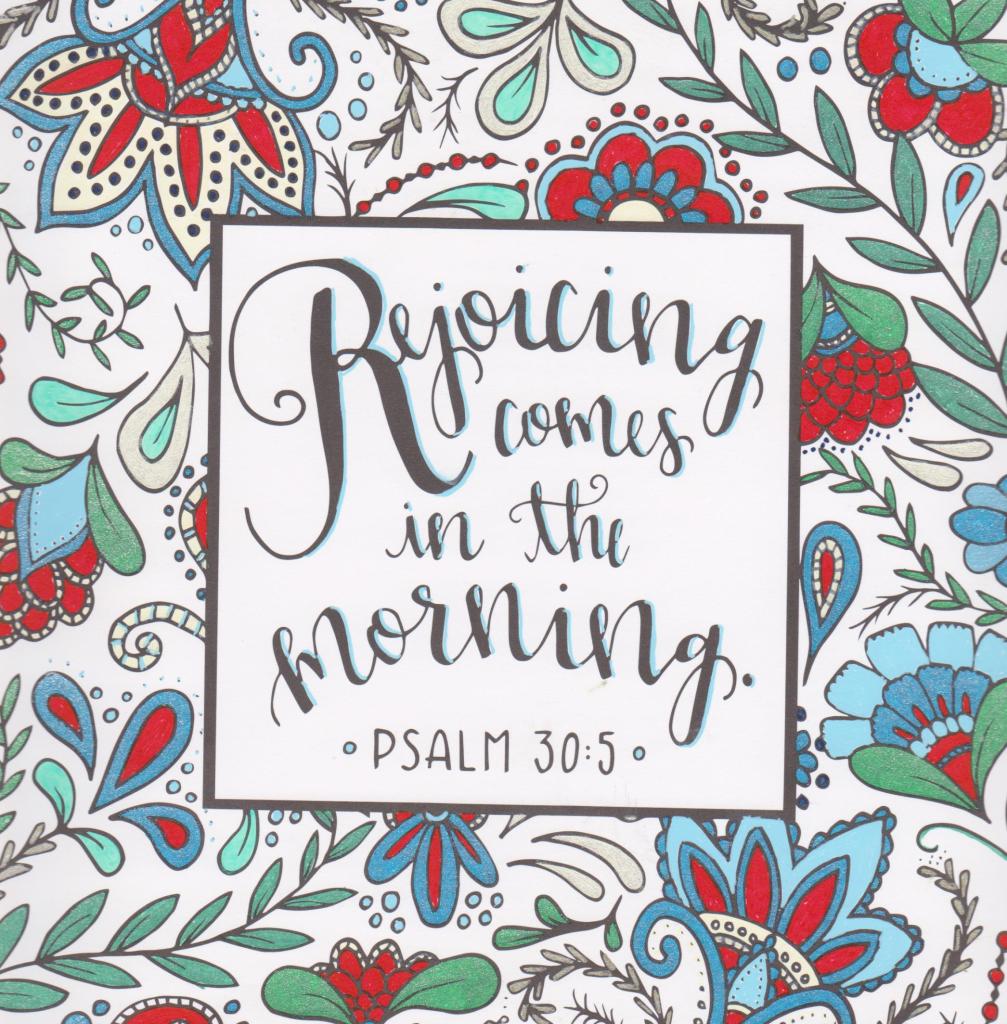 Rejoicing
comes
in the
morning.
• PSALM 30:5 •